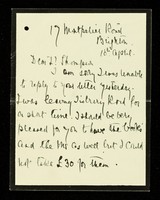 17 Montpelier Road,
Brighton.
12th April.
Dear Dr Thompson
I am sorry I was unable
to reply to your letter yesterday.
I was leaving Sudbury Road for
a short time. I should be very
pleased for you to have the books
and the MS as well but I could
not take £30 for them.